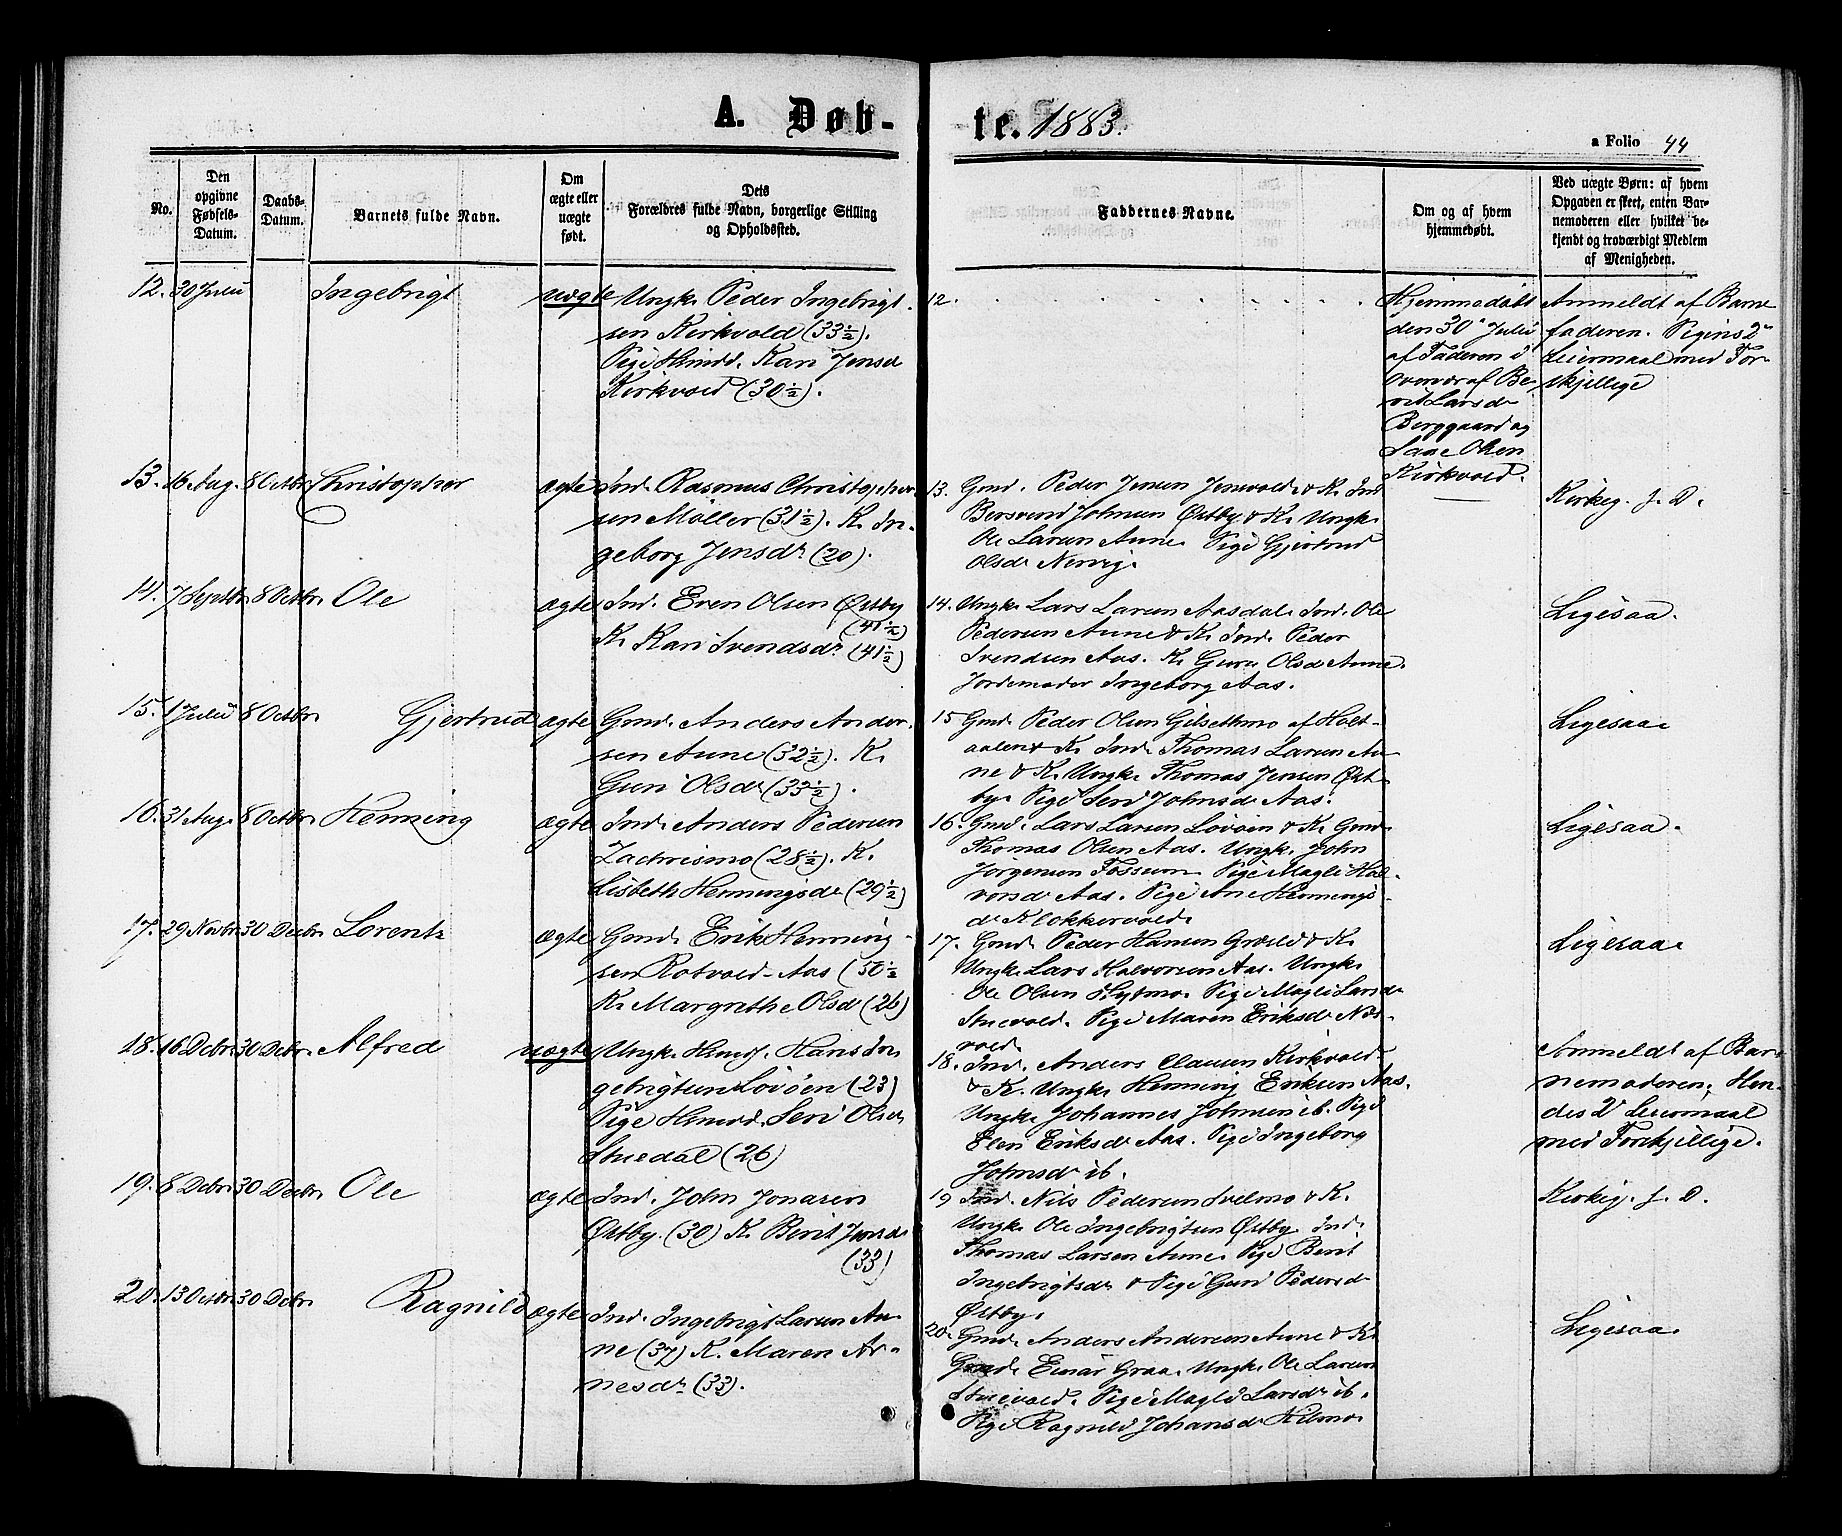 A. Døb-
te. 1883.
a Folio 44
No.
Den
opgivne
Fødsels-
Datum.
Daabs-
Datum.
Barnets fulde Navn.
Om
ægte eller
uægte
født.
Dets
Forældres fulde Navn, borgerlige Stilling
og Opholdssted.
Faddernes Navne.
Om og af hvem
hjemmedøbt.
Ved uægte Børn: af hvem
Opgaven er skeet, enten Bar-
nemoderen eller hvilket be-
kjendt og troværdigt Medlem
af Menigheden.
12. 30 Julii Ingebrigt uægte Ungk. Peder Ingebrigt-
sen Kirkvold (33½).
Pige Kari Jensd
Kirkvold (30½).
12.
Hjemmedøbt
den 30 Julii
af Faderen i
Overvær af Be-
rit Larsd.
Berggaard og
Olsen
Kirkvold.
Anmeldt af Barne-
faderen. Pigens 2
Leiermaal med For-
skjellige
13. 16 Aug. 8 Octbr. Christopher ægte Ind. Rasmus Christopher-
sen Möller (31½). K. In-
geborg Jensdr (20).
13. Gmd. Peder Jensen Jensvold & K. Ind
Bersvend Johnsen Østby & K. Ungk.
Ole Larsen Aune. Pige Gjertrud
Olsd. Nervig.
Kirkeg. f. D.
14. 7 Septbr. 8 Octbr. Ole ægte Ind. Even Olsen Østby
(41½)
K. Kari Svendsdr (41½)
14. Ungk. Lars Larsen Aasdal. Ind. Ole
Pedersen Aune & K. Ind. Peder
Svendsen Aas. K. Guru Olsd Aune.
Jordemoder Ingeborg Aas.
Ligesaa.
15. 1 Julii 8 Octbr. Gjertrud ægte Gmd. Anders Ander-
sen Aune (32½). K.
Guri Olsd. (33½).
15 Gmd. Peder Olsen Gilsetmo af Holt-
aalen & K. Ind. Thomas Larsen Au-
ne & K. Ungk. Thomas Jensen Øst-
by. Pige Seri Johnsd. Aas.
Ligesaa
16. 31 Aug. 8 Octbr. Henning ægte Ind. Anders Pedersen
Zachrismo (28½). K.
Lisbeth Henningsd. (29½)
16. Gmd. Lars Larsen Løvøen & K. Gmd.
Thomas Olsen Aas. Ungk. John
Jörgensen Fossum. Pige Magli Hal-
vorsd. Aas. Pige Ane Hennings-
d. Klokkervold.
Ligesaa.
17. 29 Novbr. 30 Decbr. Lorents ægte Gmd. Erik Henning-
sen Rotvold-Aas (30½
K. Margrethe Olsd (26)
17. Gmd. Peder Hansen & K.
Ungk. Lars Halvorsen Aas. Ungk.
Ole Olsen Hytmo. Pige Magli Larsd.
Stuevold. Pige Maren Eriksd. Næs-
vold.
Ligesaa.
18. 16 Decbr. 30 Decbr. Alfred uægte Ungk. Hans In-
gebrigtsen Løvøen (23)
Pige Seri Olsd.
Stuedal (26)
18. Ind. Anders Clausen Kirkvold
& K. Ungk. Henning Eriksen Aas.
Ungk. Johannes Johnsen ib. Pige
Elen Eriksd. Aas. Pige Ingeborg
Johnsd. ib.
Anmeldt af Bar-
nemoderen. Hen-
des 2 Leiermaal
med Forskjellige.
19. 8 Decbr. 30 Decbr. Ole ægte Ind. John Jonasen
Østby. (30) K. Berit Jensd.
(33)
19 Ind. Nils Pedersen Svelmo & K.
Ungk. Ole Ingebrigtsen Østby. Ind.
Thomas Larsen Aune. Pige Berit
Ingebrigtsd. & Pige Guri Pedersd
Østby.
Kirkeg. f. D.
20. 13 Octbr. 30 Decbr. Ragnild ægte Ind. Ingebrigt Larsen Au-
ne (37) K. Maren Ar-
nesdr (33).
20. Gmd. Anders Andersen Aune & K.
Gmd. Einar Graa. Ungk. Ole Larsen
Stuevold. Pige Magli Larsd. ib.
Pige Ragnild Johansd. Kilmo
Ligesaa.